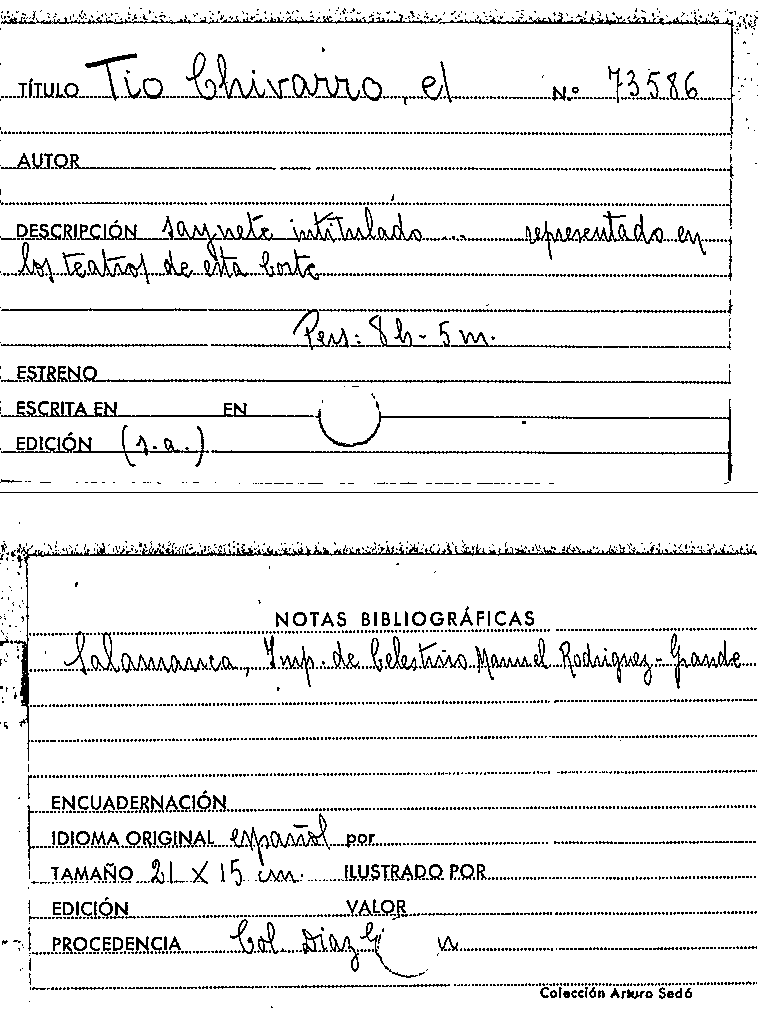 TÍTULO Tio Chivarro, el N.º 73586
AUTOR
DESCRIPCIÓN saynete intitulado ... representado en
los teatros de esta Corte
Pers: 8 h - 5 m.
ESTRENO
ESCRITA EN EN
EDICIÓN (s.a.)
NOTAS BIBLIOGRÁFICAS
Salamanca, Imp. de Celestino Manuel Rodriguez - Grande
ENCUADERNACIÓN
IDIOMA ORIGINAL español por
TAMAÑO 21 X 15 cm. ILUSTRADO POR
EDICIÓN VALOR
PROCEDENCIA Col. Diaz
Colección Arturo Sedó